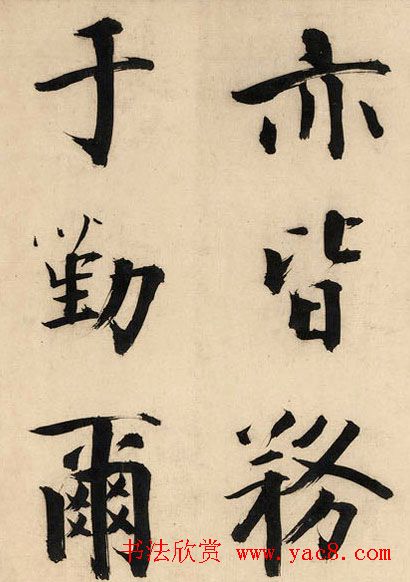 亦皆務
于勤爾
书法欣赏 www.yac8.com